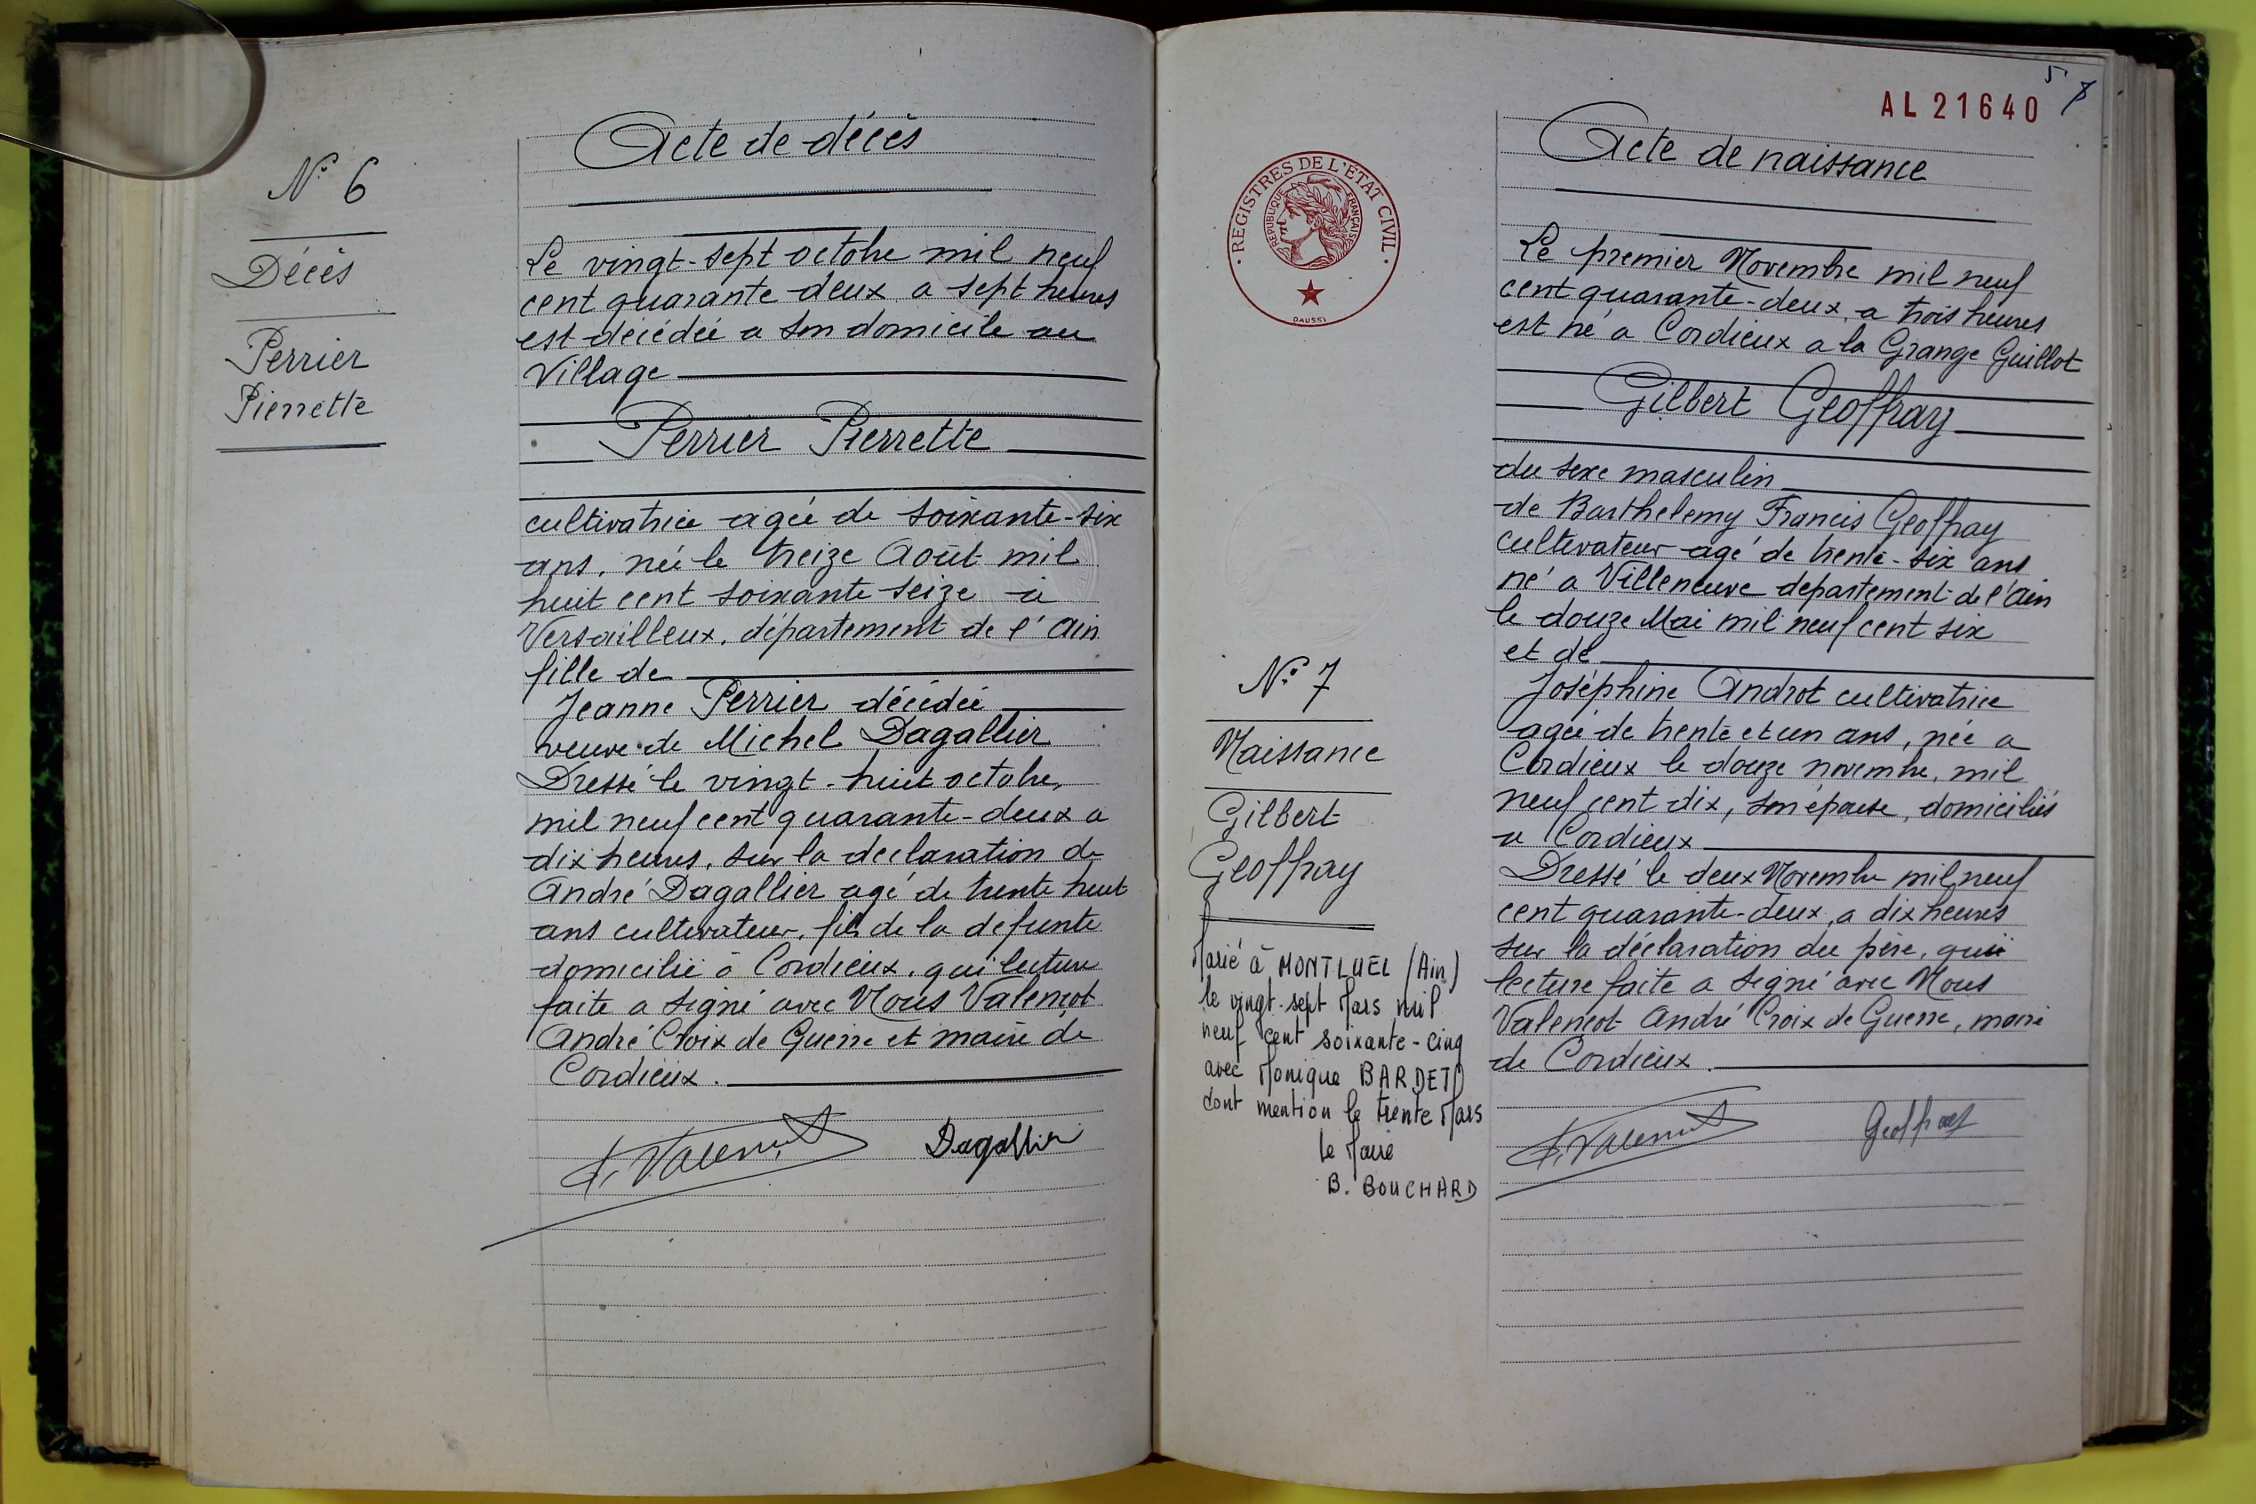 N° 6
Décès
Perrier
Pierrette
Acte de décès
Le vingt-sept octobre mil neuf
cent quarante-deux a sept heures
est décédée a son domicile au
Village
Perrier Pierrette
cultivatrice agée de soixante-six
ans, née le treize Août mil
huit cent soixante seize à
Versailleux, département de l'Ain
fille de
Jeanne Perrier décédée
veuve de Michel Dagallier
Dressé le vingt-huit octobre,
mil neuf cent quarante-deux a
dix heures, sur la déclaration de
André Dagallier agé de trente huit
ans cultivateur, fils de la defunte
domicilié à Cordieux, qui lecture
faite a signé avec Nous Valençot
André Croix de Guerre et maire de
Cordieux.
Dagallier
AL 21640
5
REGISTRES DE L'ETAT CIVIL
REPUBLIQUE FRANÇAISE
DAUSSY
N° 7
Naissance
Gilbert
Geoffray
Marié à MONTLUEL (Ain)
le vingt-sept Mars mil
neuf cent soixante-cinq
avec Monique BARDET
dont mention le trente Mars
le Maire
B. BOUCHARD
Acte de naissance
Le premier Novembre mil neuf
cent quarante-deux, a trois heures
est né a Cordieux a la Grange Guillot
Gilbert Geoffray
du sexe masculin
de Barthelemy Francis Geoffray
cultivateur agé de trente-six ans
né a Villeneuve departement de l'Ain
le douze Mai mil neuf cent six
et de
Joséphine Androt cultivatrice
agée de trente et un ans, née a
Cordieux le douze novembre, mil
neuf cent dix, son épouse, domiciliés
a Cordieux
Dressé le deux Novembre mil neuf
cent quarante-deux, a dix heures
sur la déclaration du père, qui
lecture faite a signé avec Nous
Valençot André Croix de Guerre, maire
de Cordieux.
Geoffray